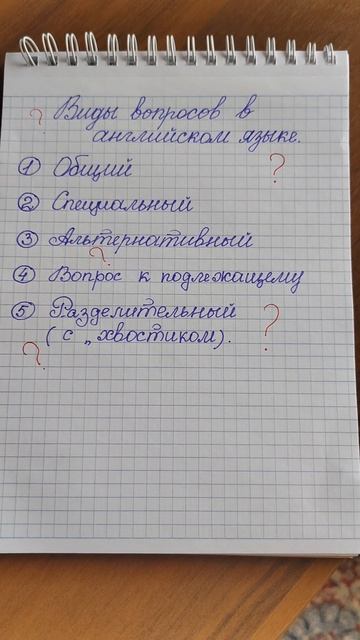 ? Виды вопросов в
английском языке.
① Общий ?
② Специальный
③ Альтернативный
?
④ Вопрос к подлежащему
⑤ Разделительный ?
( с „хвостиком).
?